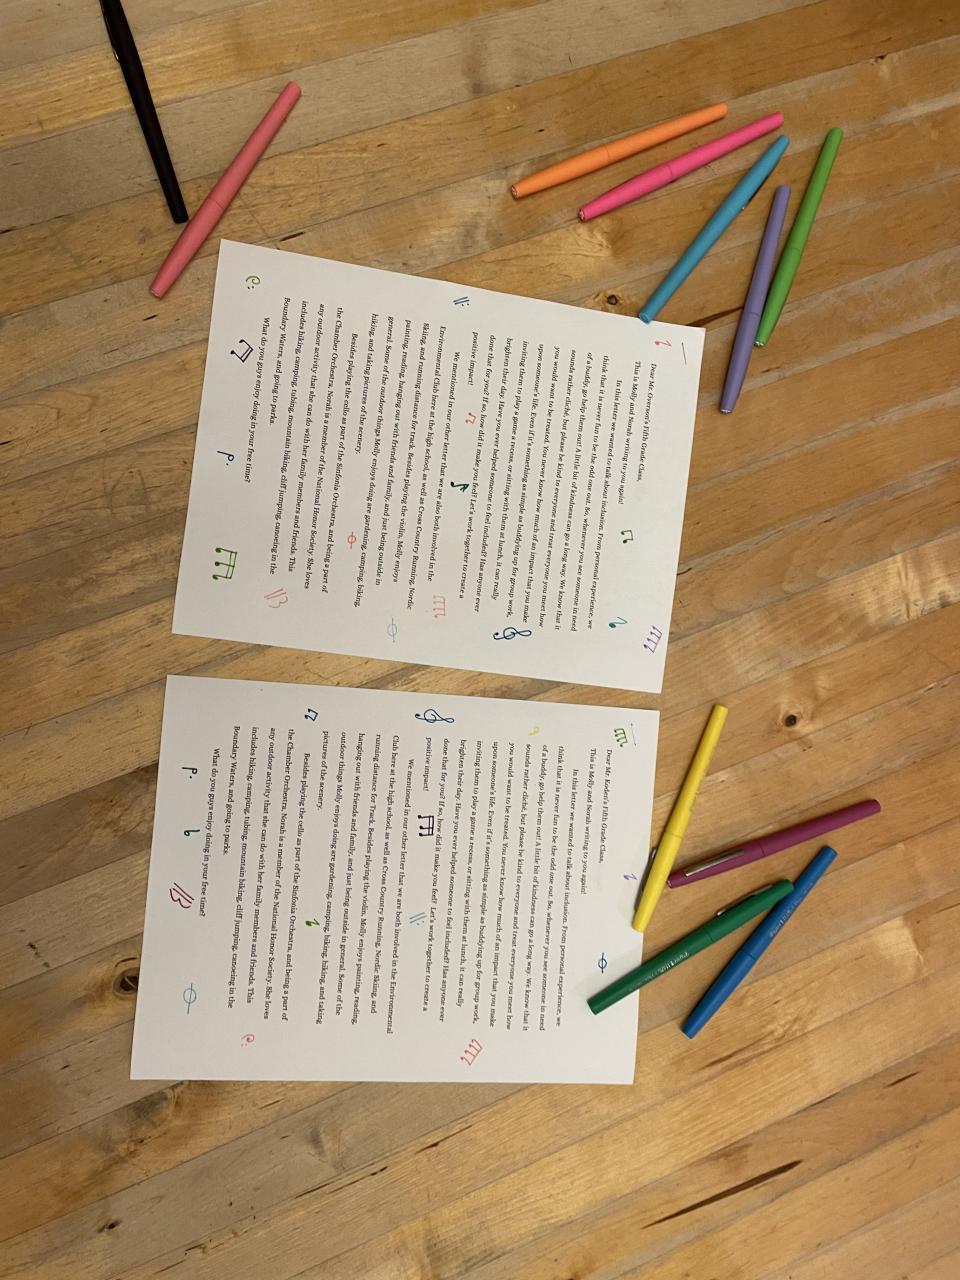 Dear Mr. Overson's Fifth Grade Class,
This is Molly and Norah writing to you again!
In this letter we wanted to talk about inclusion. From personal experience, we
think that it is never fun to be the odd one out. So, whenever you see someone in need
of a buddy, go help them out! A little bit of kindness can go a long way. We know that it
sounds rather cliché, but please be kind to everyone and treat everyone you meet how
you would want to be treated. You never know how much of an impact that you make
upon someone's life. Even if it's something as simple as buddying up for group work,
inviting them to play a game a recess, or sitting with them at lunch, it can really
brighten their day. Have you ever helped someone to feel included? Has anyone ever
done that for you? If so, how did it make you feel? Let's work together to create a
positive impact!
We mentioned in our other letter that we are also both involved in the
Environmental Club here at the high school, as well as Cross Country Running, Nordic
Skiing, and running distance for track. Besides playing the violin, Molly enjoys
painting, reading, hanging out with friends and family, and just being outside in
general. Some of the outdoor things Molly enjoys doing are gardening, camping, biking,
hiking, and taking pictures of the scenery.
Besides playing the cello as part of the Sinfonia Orchestra, and being a part of
the Chamber Orchestra, Norah is a member of the National Honor Society. She loves
any outdoor activity that she can do with her family members and friends. This
includes hiking, camping, tubing, mountain biking, cliff jumping, canoeing in the
Boundary Waters, and going to parks.
What do you guys enjoy doing in your free time?
Dear Mr. Fifth Grade Class,
This is Molly and Norah writing to you again!
In this letter we wanted to talk about inclusion. From personal experience, we
think that it is never fun to be the odd one out. So, whenever you see someone in need
of a buddy, go help them out! A little bit of kindness can go a long way. We know that it
sounds rather cliché, but please be kind to everyone and treat everyone you meet how
you would want to be treated. You never know how much of an impact that you make
upon someone's life. Even if it's something as simple as buddying up for group work,
inviting them to play a game a recess, or sitting with them at lunch, it can really
brighten their day. Have you ever helped someone to feel included? Has anyone ever
done that for you? If so, how did it make you feel? Let's work together to create a
positive impact!
We mentioned in our other letter that we are both involved in the Environmental
Club here at the high school, as well as Cross Country Running, Nordic Skiing, and
running distance for Track. Besides playing the violin, Molly enjoys painting, reading,
hanging out with friends and family, and just being outside in general. Some of the
outdoor things Molly enjoys doing are gardening, camping, biking, hiking, and taking
pictures of the scenery.
Besides playing the cello as part of the Sinfonia Orchestra, and being a part of
the Chamber Orchestra, Norah is a member of the National Honor Society. She loves
any outdoor activity that she can do with her family members and friends. This
includes hiking, camping, tubing, mountain biking, cliff jumping, canoeing in the
Boundary Waters, and going to parks.
What do you guys enjoy doing in your free time?